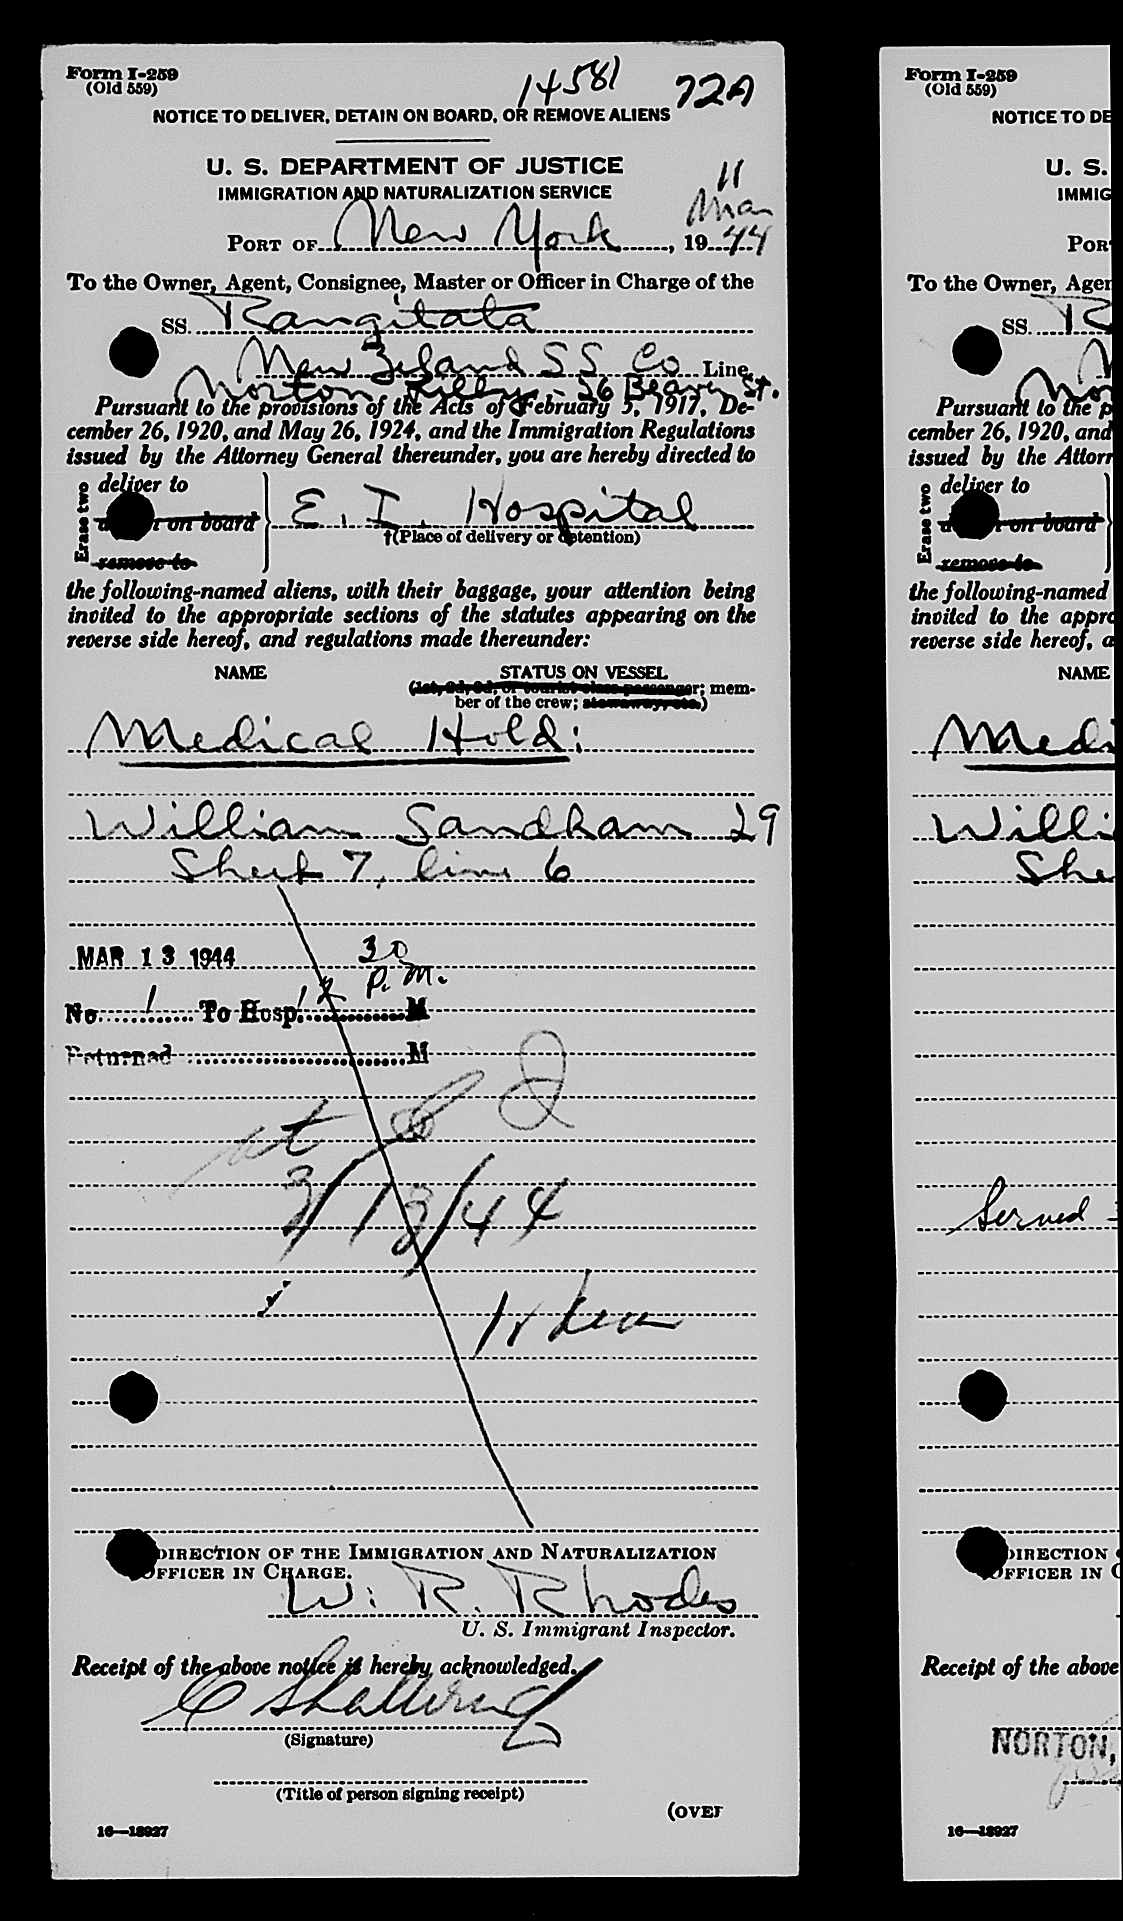 Form I-259
(Old 559)
14581 72A
NOTICE TO DELIVER, DETAIN ON BOARD, OR REMOVE ALIENS
U. S. DEPARTMENT OF JUSTICE
IMMIGRATION AND NATURALIZATION SERVICE
11
Mar
PORT OF New York, 1944
To the Owner, Agent, Consignee, Master or Officer in Charge of the
SS. Rangitata
New Zeland SS Co Line
Norton Lilly - 26 Beaver St.
Pursuant to the provisions of the Acts of February 5, 1917, De-
cember 26, 1920, and May 26, 1924, and the Immigration Regulations
issued by the Attorney General thereunder, you are hereby directed to
Erase two
deliver to
on board
remove to
E. I. Hospital
†(Place of delivery or detention)
the following-named aliens, with their baggage, your attention being
invited to the appropriate sections of the statutes appearing on the
reverse side hereof, and regulations made thereunder:
NAME STATUS ON VESSEL
(1st, 2d, 3d, or tourist class passenger; mem-
ber of the crew; stowaway, etc.)
Medical Hold:
William Sandham 29
Sheet 7, line 6
MAR 13 1944 30
P.M.
No. 1 To Hosp. 12 M
Returned M
at
3/13/44
DIRECTION OF THE IMMIGRATION AND NATURALIZATION
OFFICER IN CHARGE.
W. R. Rhodes
U. S. Immigrant Inspector.
Receipt of the above notice is hereby acknowledged.
(Signature)
(Title of person signing receipt)
(OVER
16—18927
Form I-259
(Old 559)
NOTICE TO DE
U. S.
IMMIG
POR
To the Owner, Agen
SS. R
Pursuant to the p
cember 26, 1920, and
issued by the Attorn
Erase two
deliver to
on board
remove to
the following-named
invited to the appro
reverse side hereof, a
NAME
Medi
Willi
She
Served
DIRECTION
OFFICER IN C
Receipt of the above
NORTON,
16—18927